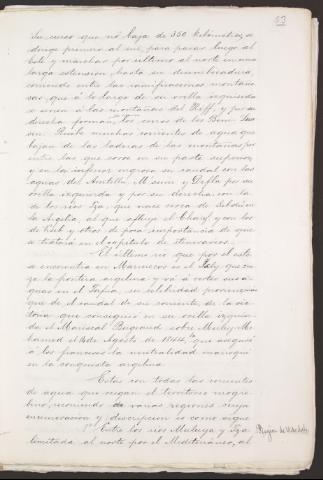 53
Su curso que no baja de 350 kilómetros, se
dirige primero al sur, para pasar luego al
Este y marchar por último al norte en una
larga estension, hasta su desembocadura,
corriendo entre las ramificaciones montaño
sas, que á lo largo de su orilla izquierda
se unen á las montañas del Riff, y por su
derecha forman, los cerros de los Beni
sen. Recibe muchas corrientes de agua que
bajan de las laderas de las montañas por
entre las que corre en su parte superior,
y en la inferior engrosa su caudal con las
aguas del M'sun y Defla por su
orilla izquierda y por su derecha con la
de los rios Za, que nace cerca de Sebdu en
la Argelia, al que afluye el Charef, y con los
de Kseb y otros de poca importancia de que
se tratará en el capítulo de itinerarios.
El último rio que por el este
se encuentra en Marruecos es el Isly, que cru
za la frontera argelina y vá á verter sus a
guas en el Tafna, su celebridad proviene mas
que de l caudal de su corriente, de la vic
toria que consiguió en su orilla izquier
da el Mariscal Bugeaud sobre Muley Mo
hamed el 14 de Agosto de 1844, que aseguró
á los franceses la neutralidad marroquí
en la conquista argelina.
Estas son todas las corrientes
de agua que riegan el territorio mogre
bino, reuniendo varias regiones cuya
enumeracion y descripcion es como sigue
1º Entre los rios Muluya y Isly
limitada al norte por el Mediterráneo, al
Region de